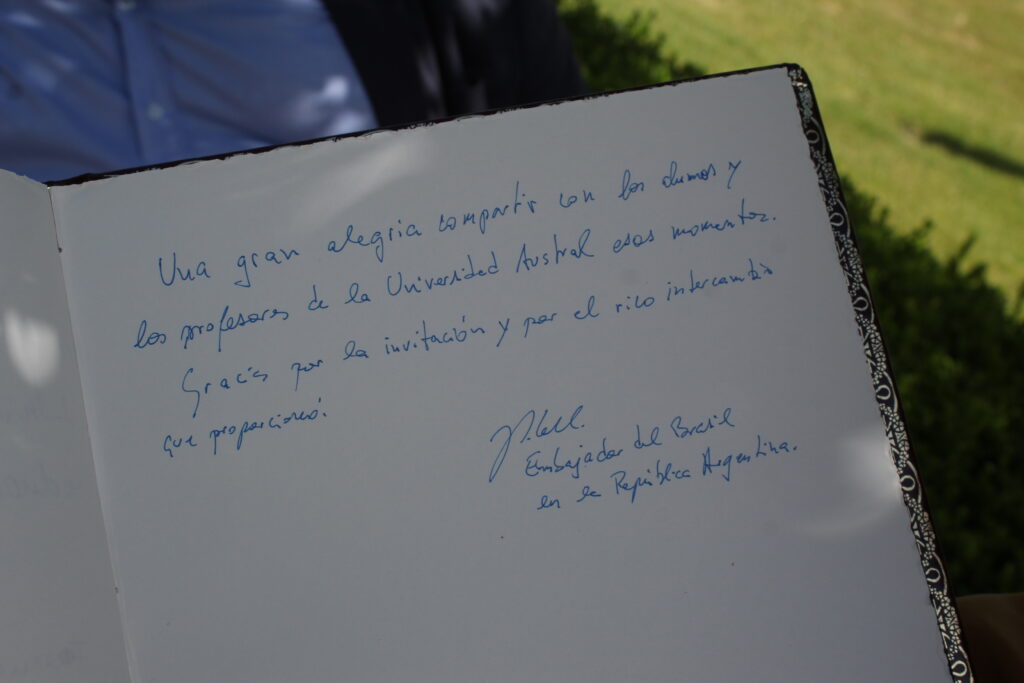 Una gran alegria compartir con los alumnos y
los profesores de la Universidad Austral esos momentos.
Gracias por la invitación y por el rico intercambio
que proporcionó.
Embajador del Brasil
en la República Argentina.